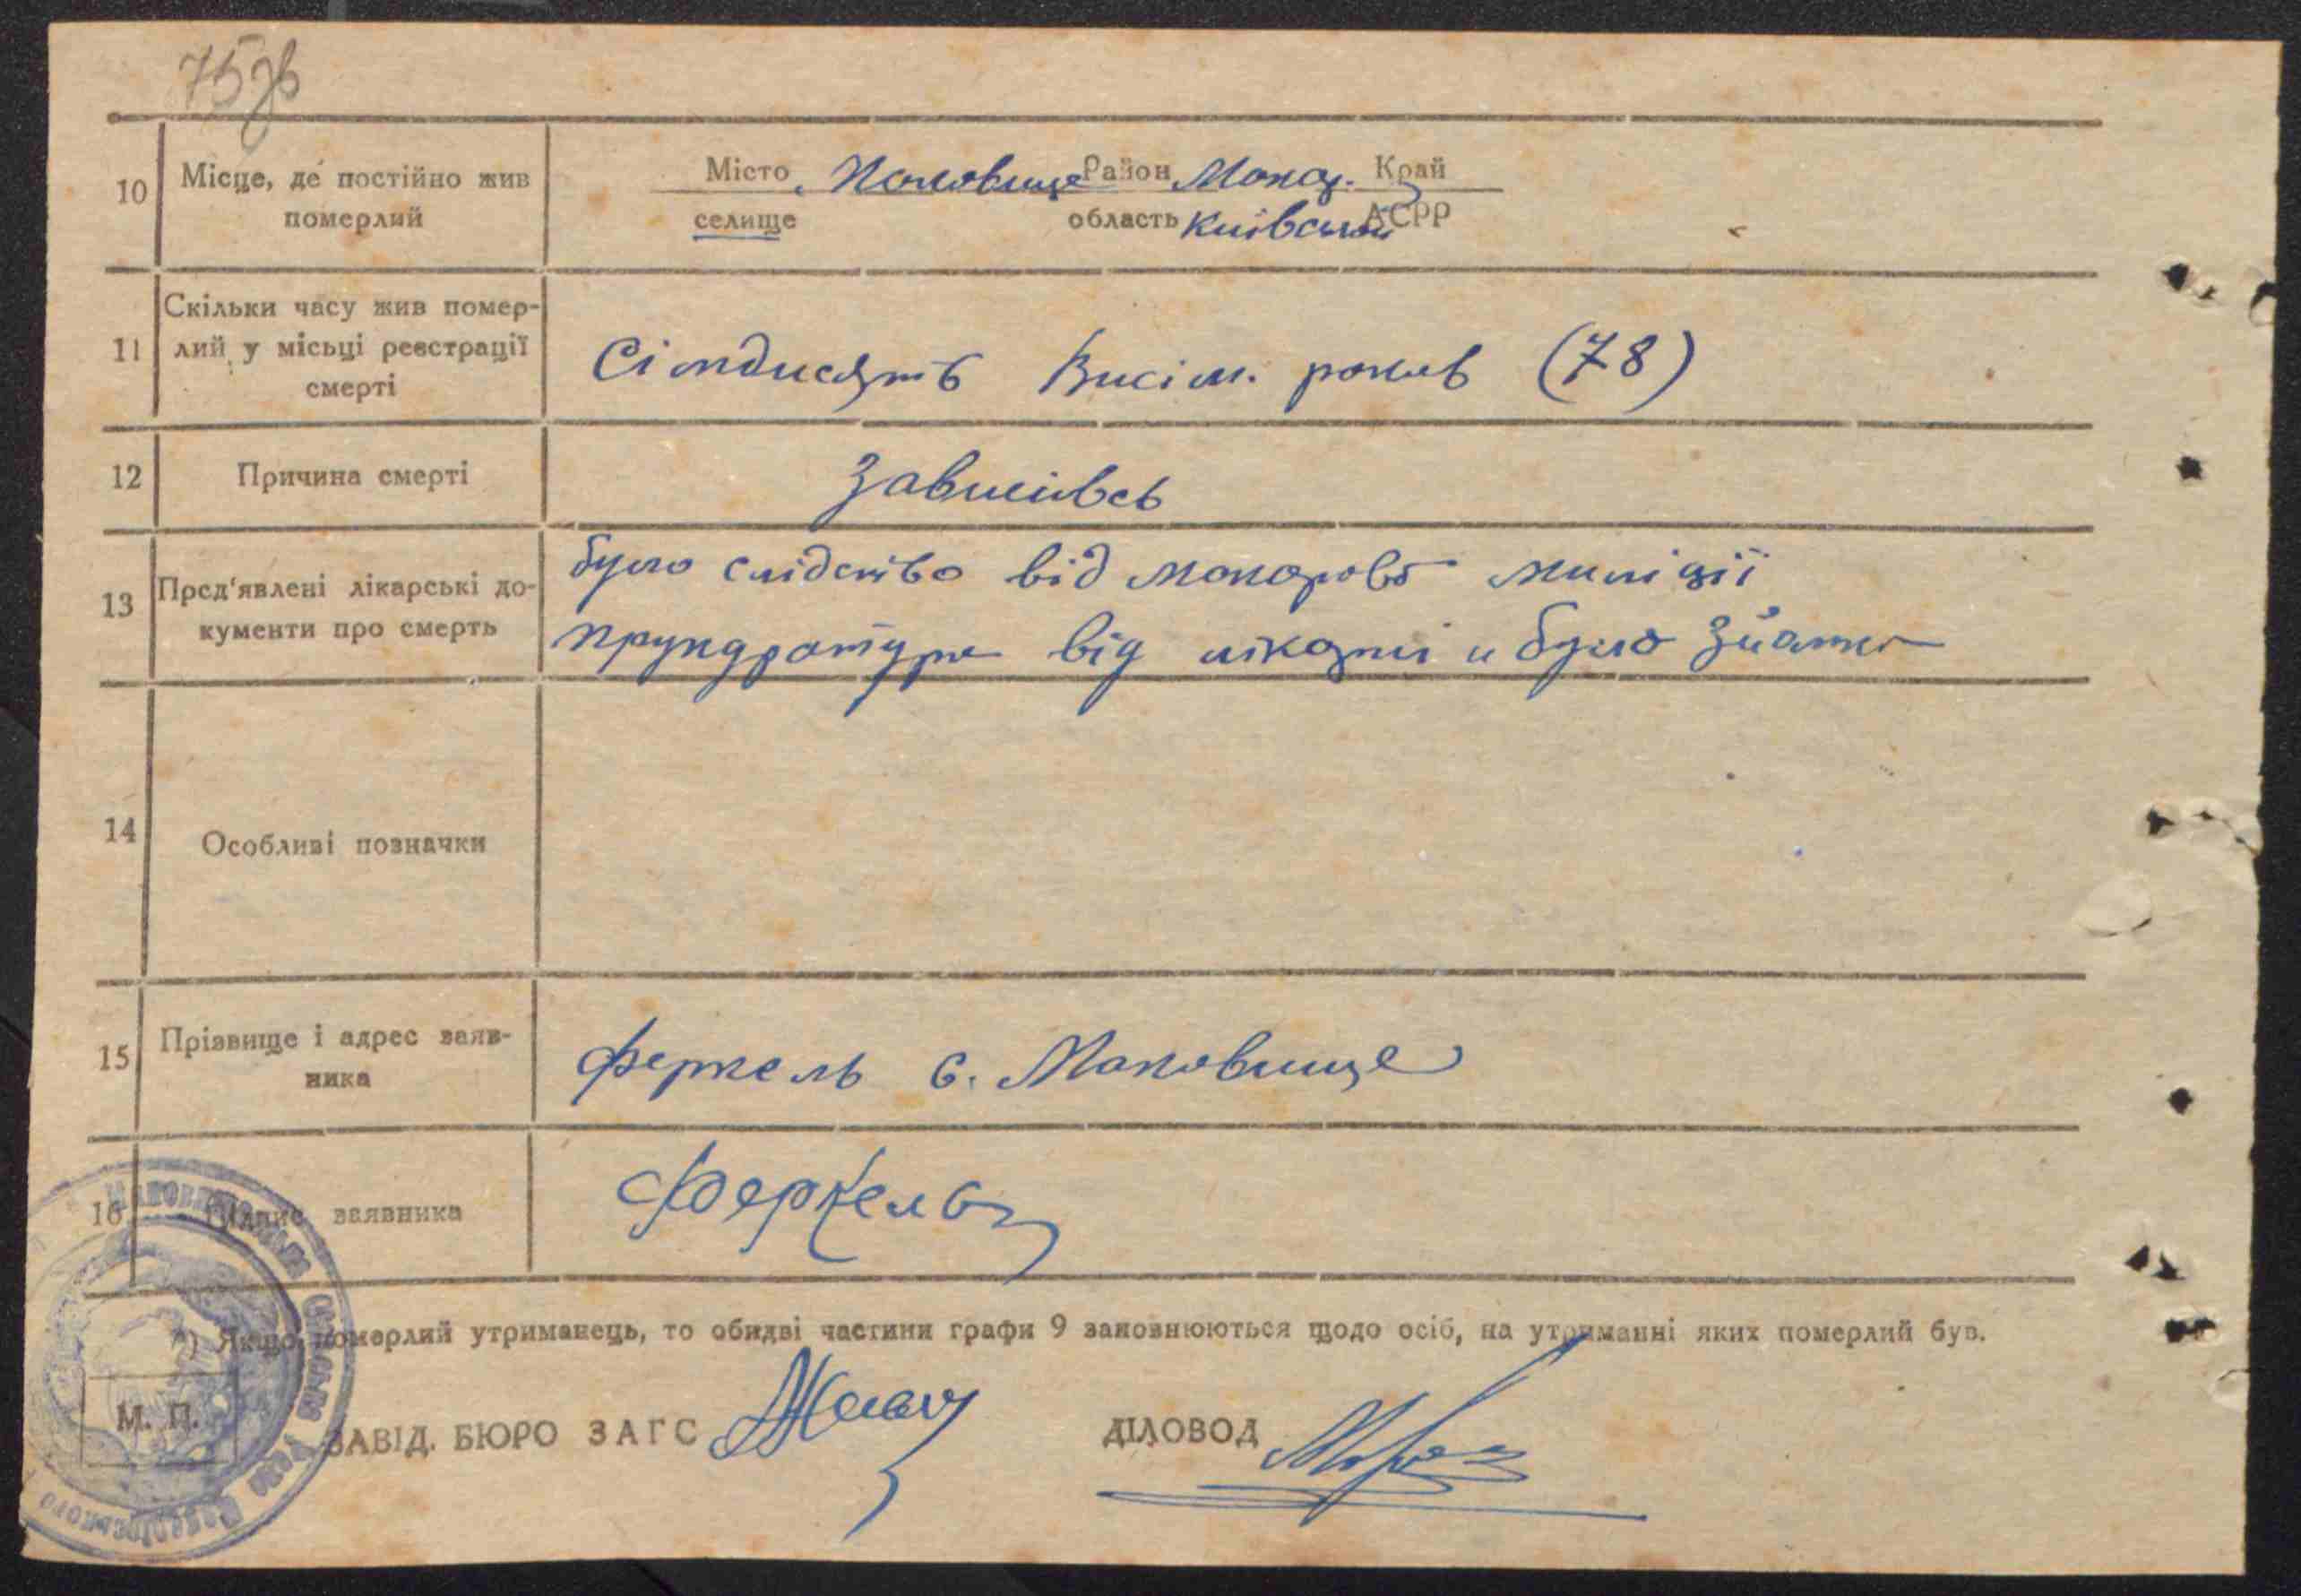 75зв
10 Місце, де постійно жив померлий
Місто Маковище Район Макар. Край
селище область Київської АСРР
11 Скільки часу жив помер-
лий у місьці реєстрації
смерті
Сімдисять Висім. роков (78)
12 Причина смерті
Зависівсь
13 Пред'явлені лікарські до-
кументи про смерть
було слідство від макаров міліції
від лікарні и було
14 Особливі позначки
15 Прізвище і адрес заяв-
ника
Феркель с. Маковище
16 Підпис заявника
Феркель
*) Якщо померлий утриманець, то обидві частини графи 9 заповнюються щодо осіб, на утриманні яких померлий був.
М. П.
ЗАВІД. БЮРО ЗАГС
ДІЛОВОД